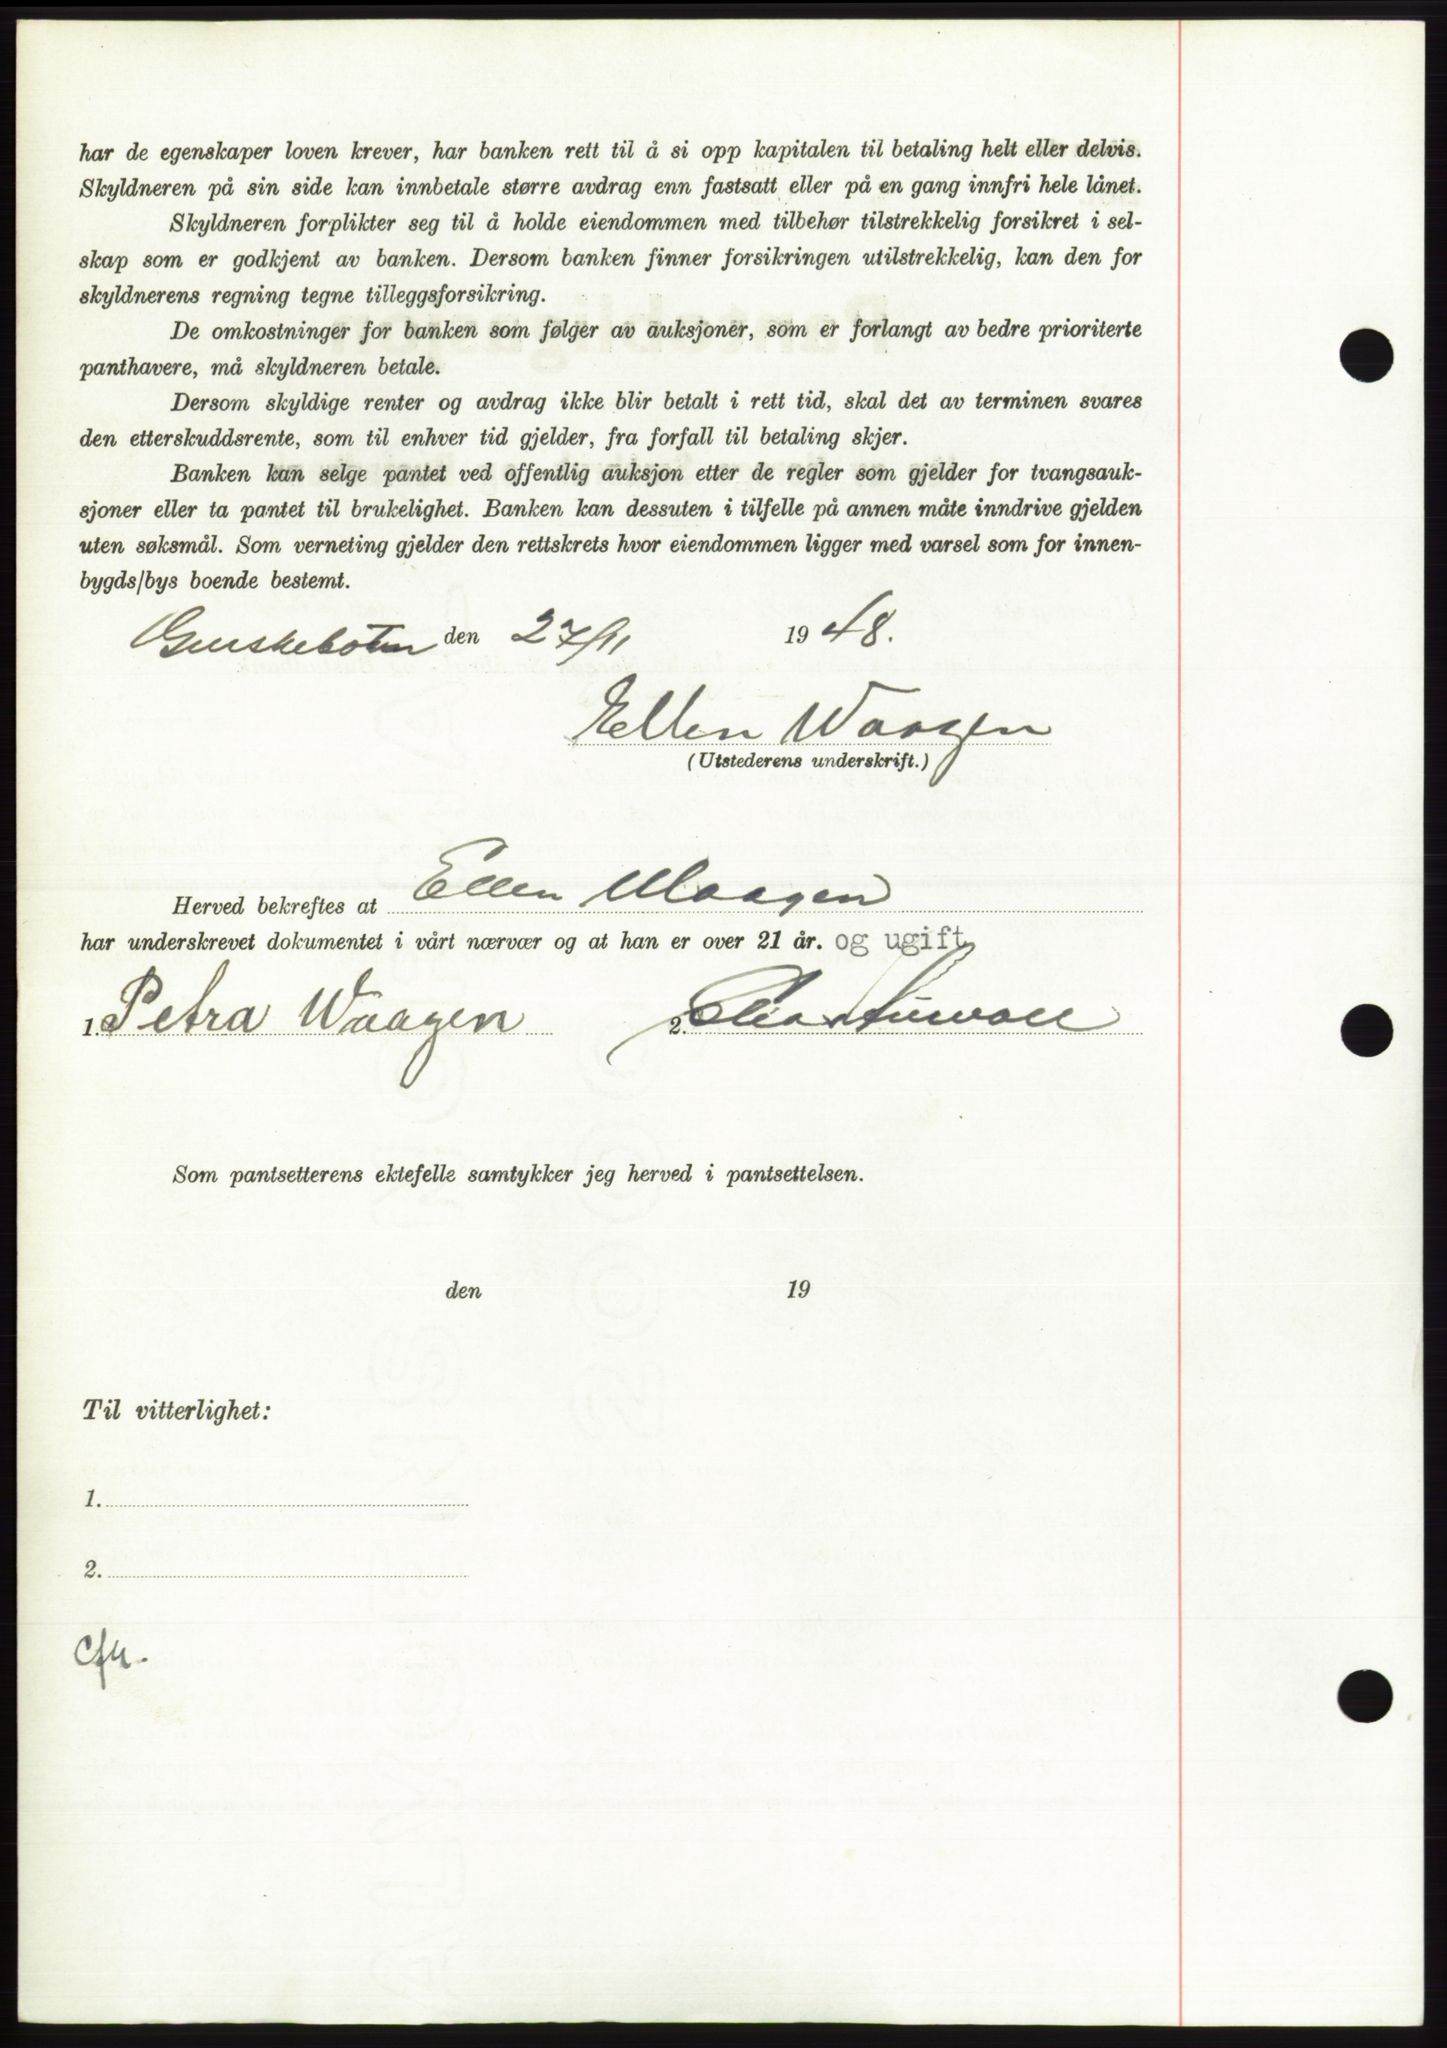 har de egenskaper loven krever, har banken rett til å si opp kapitalen til betaling helt eller delvis.
Skyldneren på sin side kan innbetale større avdrag enn fastsatt eller på en gang innfri hele lånet.
Skyldneren forplikter seg til å holde eiendommen med tilbehør tilstrekkelig forsikret i sel-
skap som er godkjent av banken. Dersom banken finner forsikringen utilstrekkelig, kan den for
skyldnerens regning tegne tilleggsforsikring.
De omkostninger for banken som følger av auksjoner, som er forlangt av bedre prioriterte
panthavere, må skyldneren betale.
Dersom skyldige renter og avdrag ikke blir betalt i rett tid, skal det av terminen svares
den etterskuddsrente, som til enhver tid gjelder, fra forfall til betaling skjer.
Banken kan selge pantet ved offentlig auksjon etter de regler som gjelder for tvangsauk-
sjoner eller ta pantet til brukelighet. Banken kan dessuten i tilfelle på annen måte inndrive gjelden
uten søksmål. Som verneting gjelder den rettskrets hvor eiendommen ligger med varsel som for innen-
bygds/bys boende bestemt.
Gurskebotn den 27/11 1948.
Ellen Waagen
(Utstederens underskrift.)
Herved bekreftes at Ellen Waagen
har underskrevet dokumentet i vårt nærvær og at han er over 21 år. og ugift
1. Petra Waagen 2.
Som pantsetterens ektefelle samtykker jeg herved i pantsettelsen.
den 19
Til vitterlighet:
1.
2.